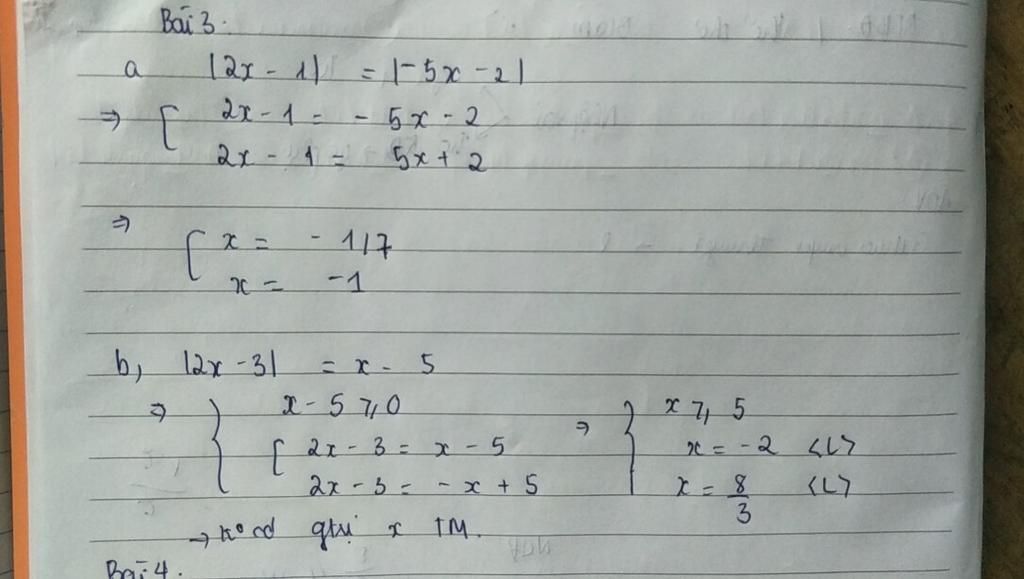 Bài 3.
a |2x - 1| = |-5x - 2|
⇒ [ 2x - 1 = - 5x - 2
2x - 1 = 5x + 2
⇒ [ x = - 1/7
x = -1
b, |2x - 3| = x - 5
⇒ { x - 5 ≥ 0 ⇒ { x ≥ 5
[ 2x - 3 = x - 5 x = -2 <L>
2x - 3 = - x + 5 x = 8/3 <L>
→ K° có gtrị x TM.
Bài 4.